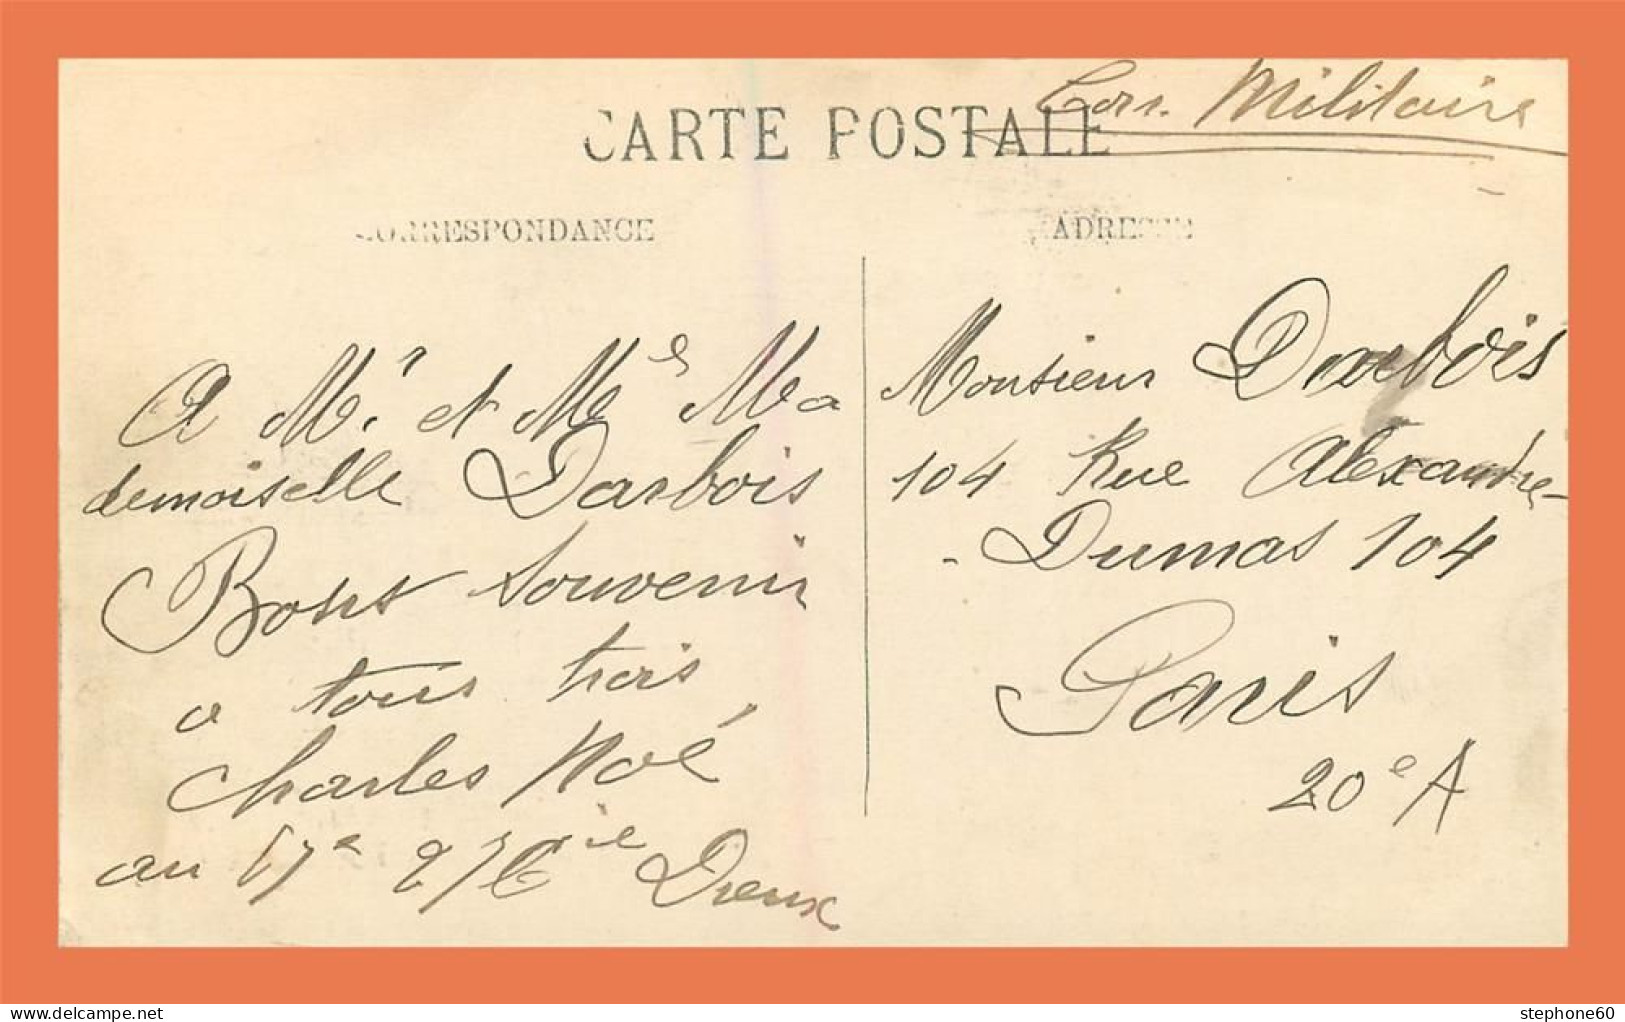 Corr. Militaire
CARTE POSTALE
CORRESPONDANCE
ADRESSE
A Mr et Me Ma
demoiselle Darbois
Bons Souvenir
a tous trois
Charles Noé
au Dreux
Monsieur Darbois
104 Rue Alexandre
- Dumas 104
Paris
20e A
www.delcampe.net
stephone60